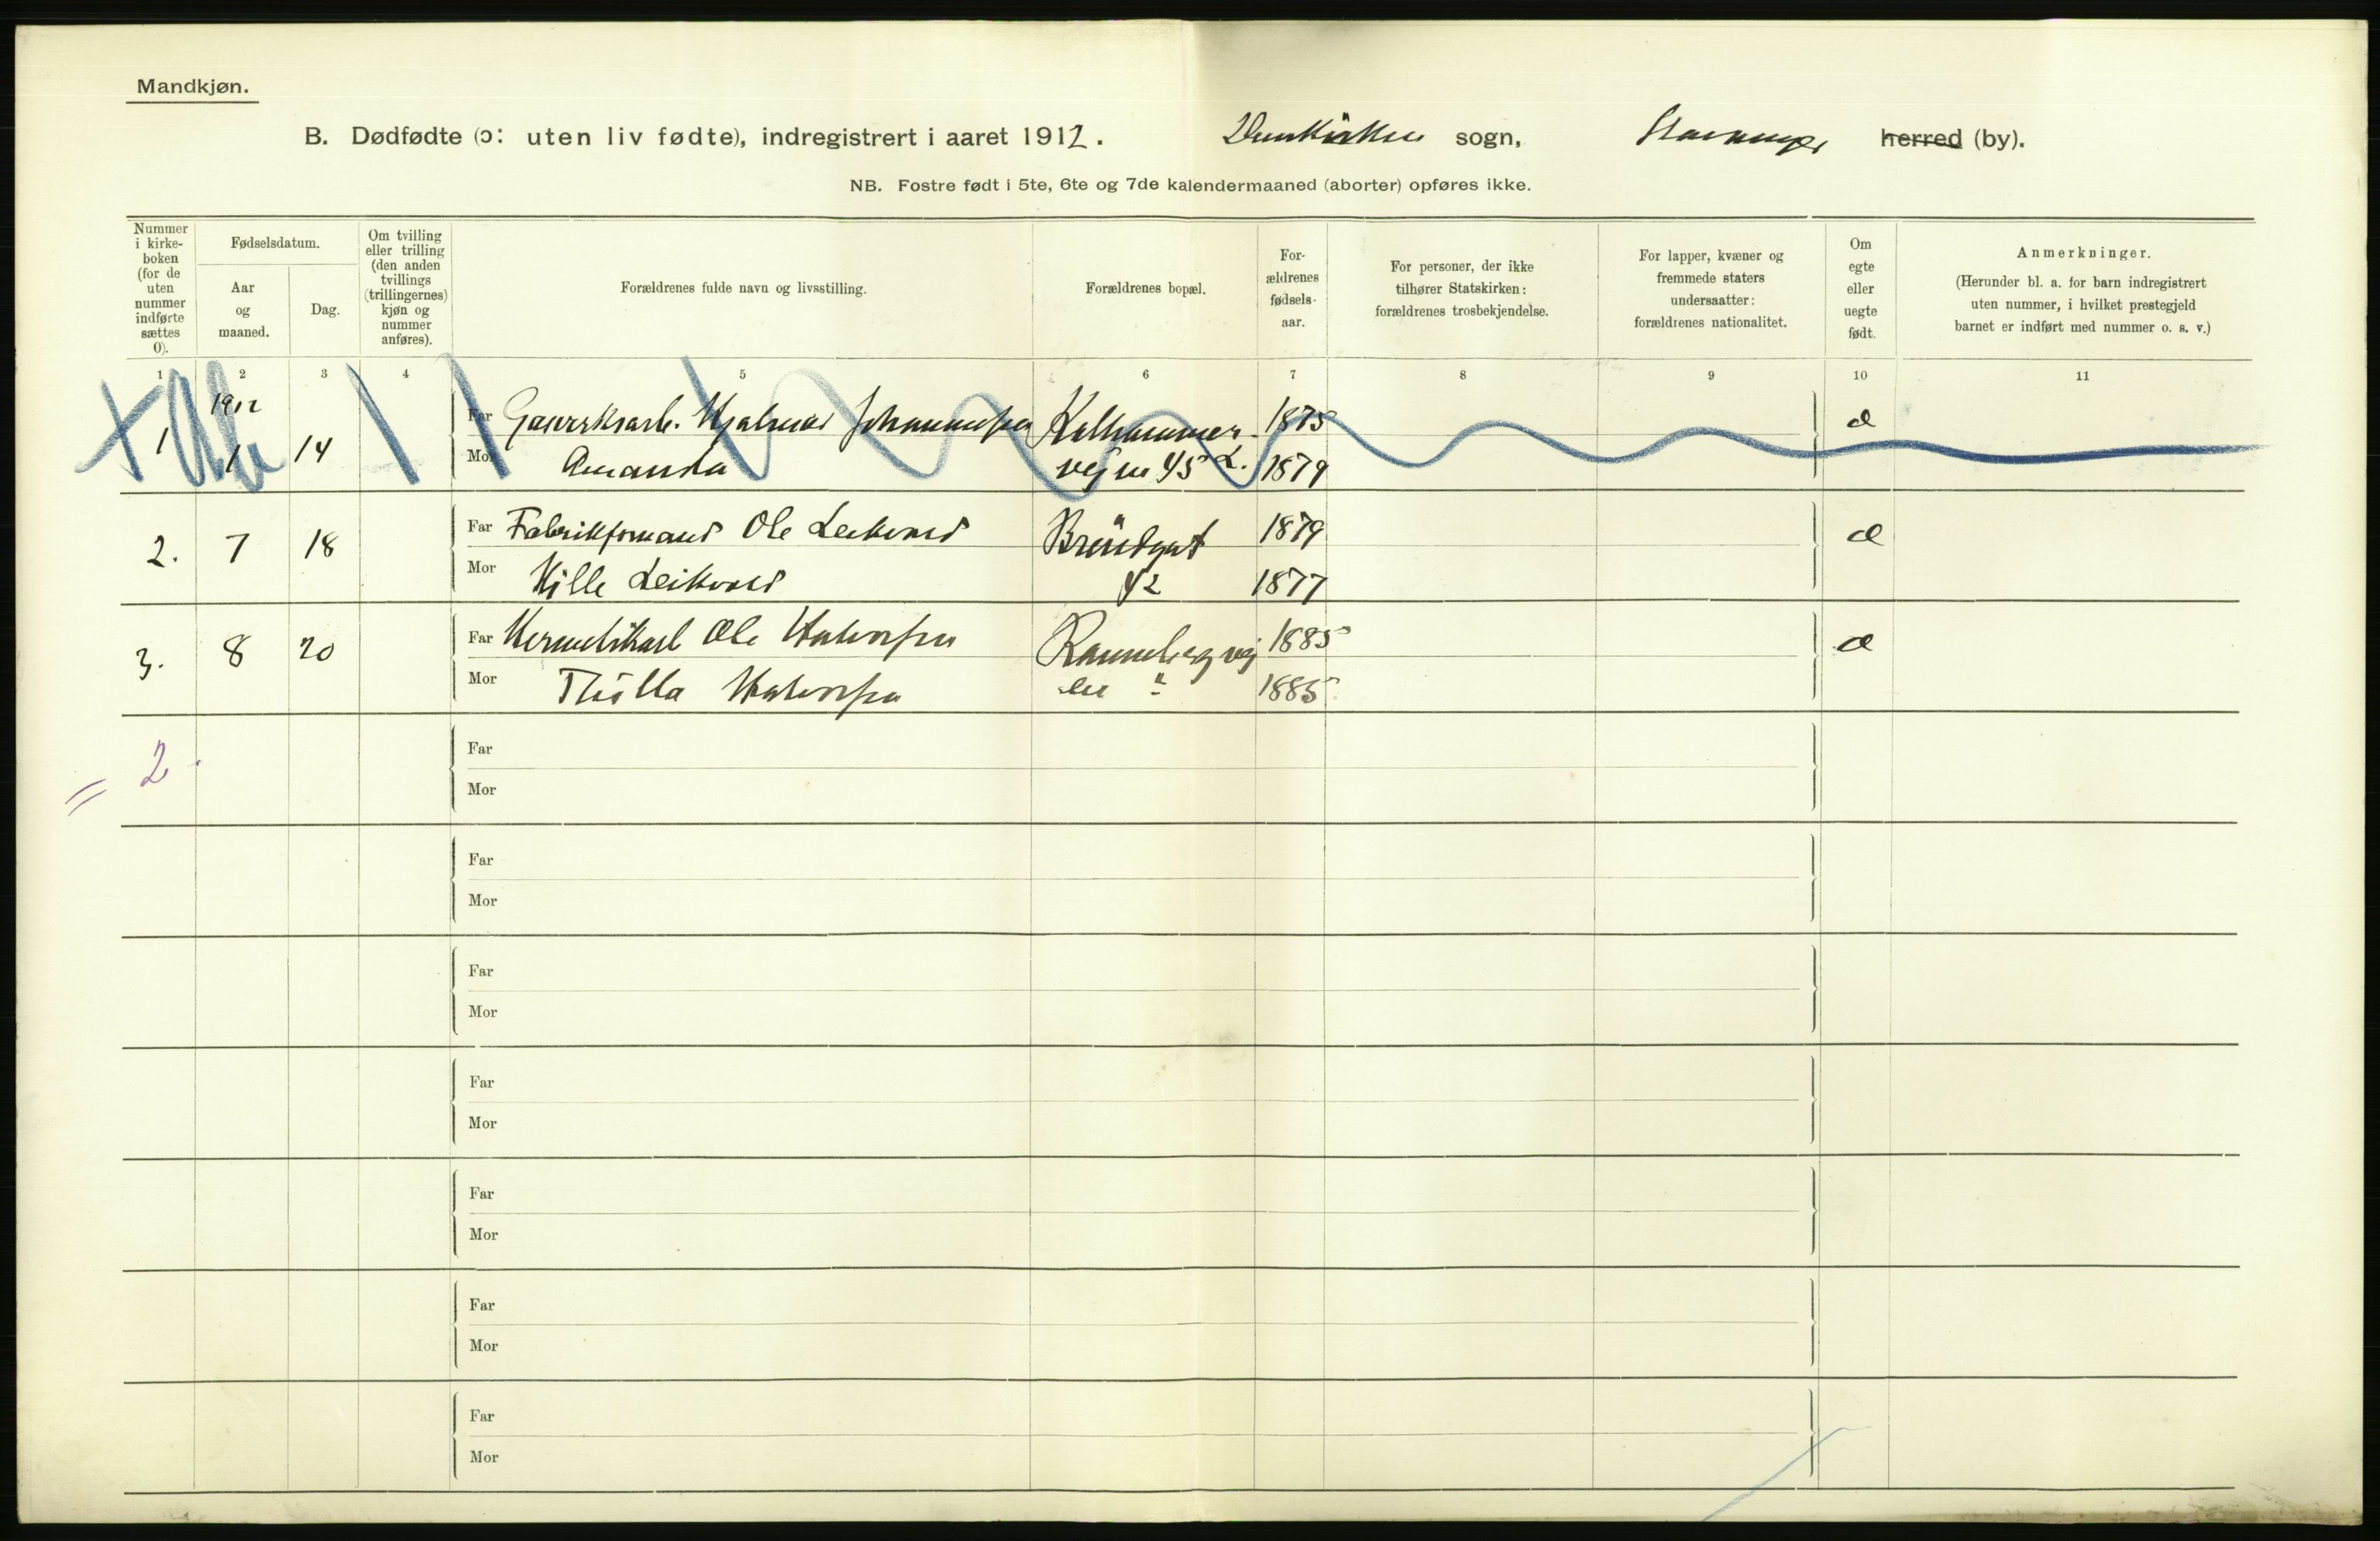 Mandkjøn.
B. Dødfødte (ɔ: uten liv fødte), indregistrert i aaret 1912. Domkirken sogn, Stavanger herred (by).
NB. Fostre født i 5te, 6te og 7de kalendermaaned (aborter) opføres ikke.
Nummer i kirke-boken (for de uten nummer indførte sættes 0).
Fødselsdatum.
Aar og maaned.
Dag.
Om tvilling eller trilling (den anden tvillings (trillingernes) kjøn og nummer anføres).
Forældrenes fulde navn og livsstilling.
Forældrenes bopæl.
For-ældrenes fødsels-aar.
For personer, der ikke tilhører Statskirken: forældrenes trosbekjendelse.
For lapper, kvæner og fremmede staters undersaatter: forældrenes nationalitet.
Om egte eller uegte født.
Anmerkninger.
(Herunder bl. a. for barn indregistrert uten nummer, i hvilket prestegjeld barnet er indført med nummer o. s. v.)
1 2 3 4 5 6 7 8 9 10 11
1912
Far Hjalmar Johannesen 1875
1 1 14
Mor Amanda vej nr 45 1879
Far Fabrikformand Ole 1879
2. 7 18
Mor 42 1877
Far Hermetikarb Ole Halvorsen 1885
3. 8 20
Mor Halvorsen 1885
= 2
Far
Mor
Far
Mor
Far
Mor
Far
Mor
Far
Mor
Far
Mor
Far
Mor